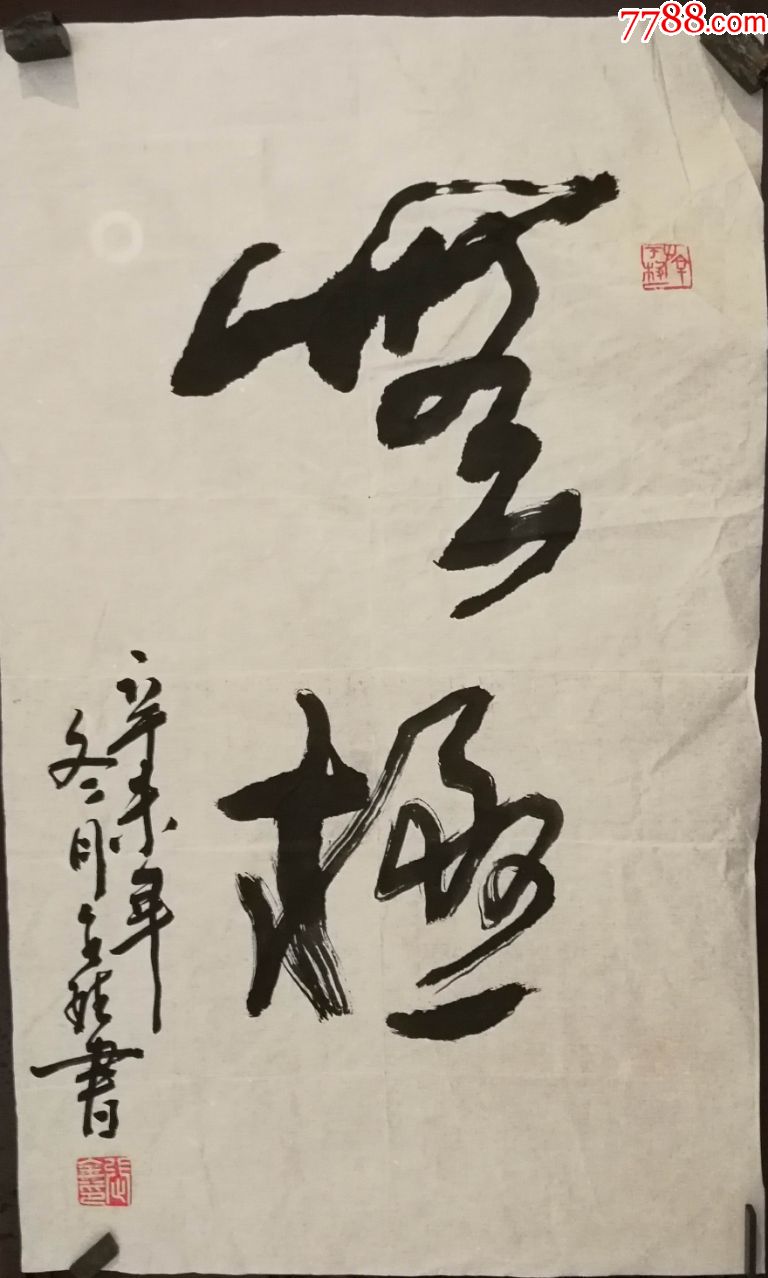 7788.com
無極
辛未年
冬月
書